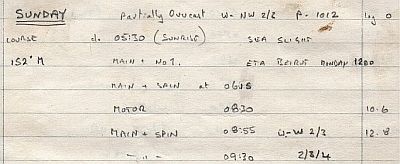 SUNDAY Partially Overcast W-NW 2/3 P-1012 Log 0
COURSE d. 05:30 (SUNRISE) SEA SLIGHT
152°M MAIN + No1. ETA BEIRUT MONDAY 1200
MAIN + SPIN at 0645
MOTOR 0830 10.6
MAIN + SPIN 08:55 W-NW 2/3 12.8
-"- 09:30 2/3/4